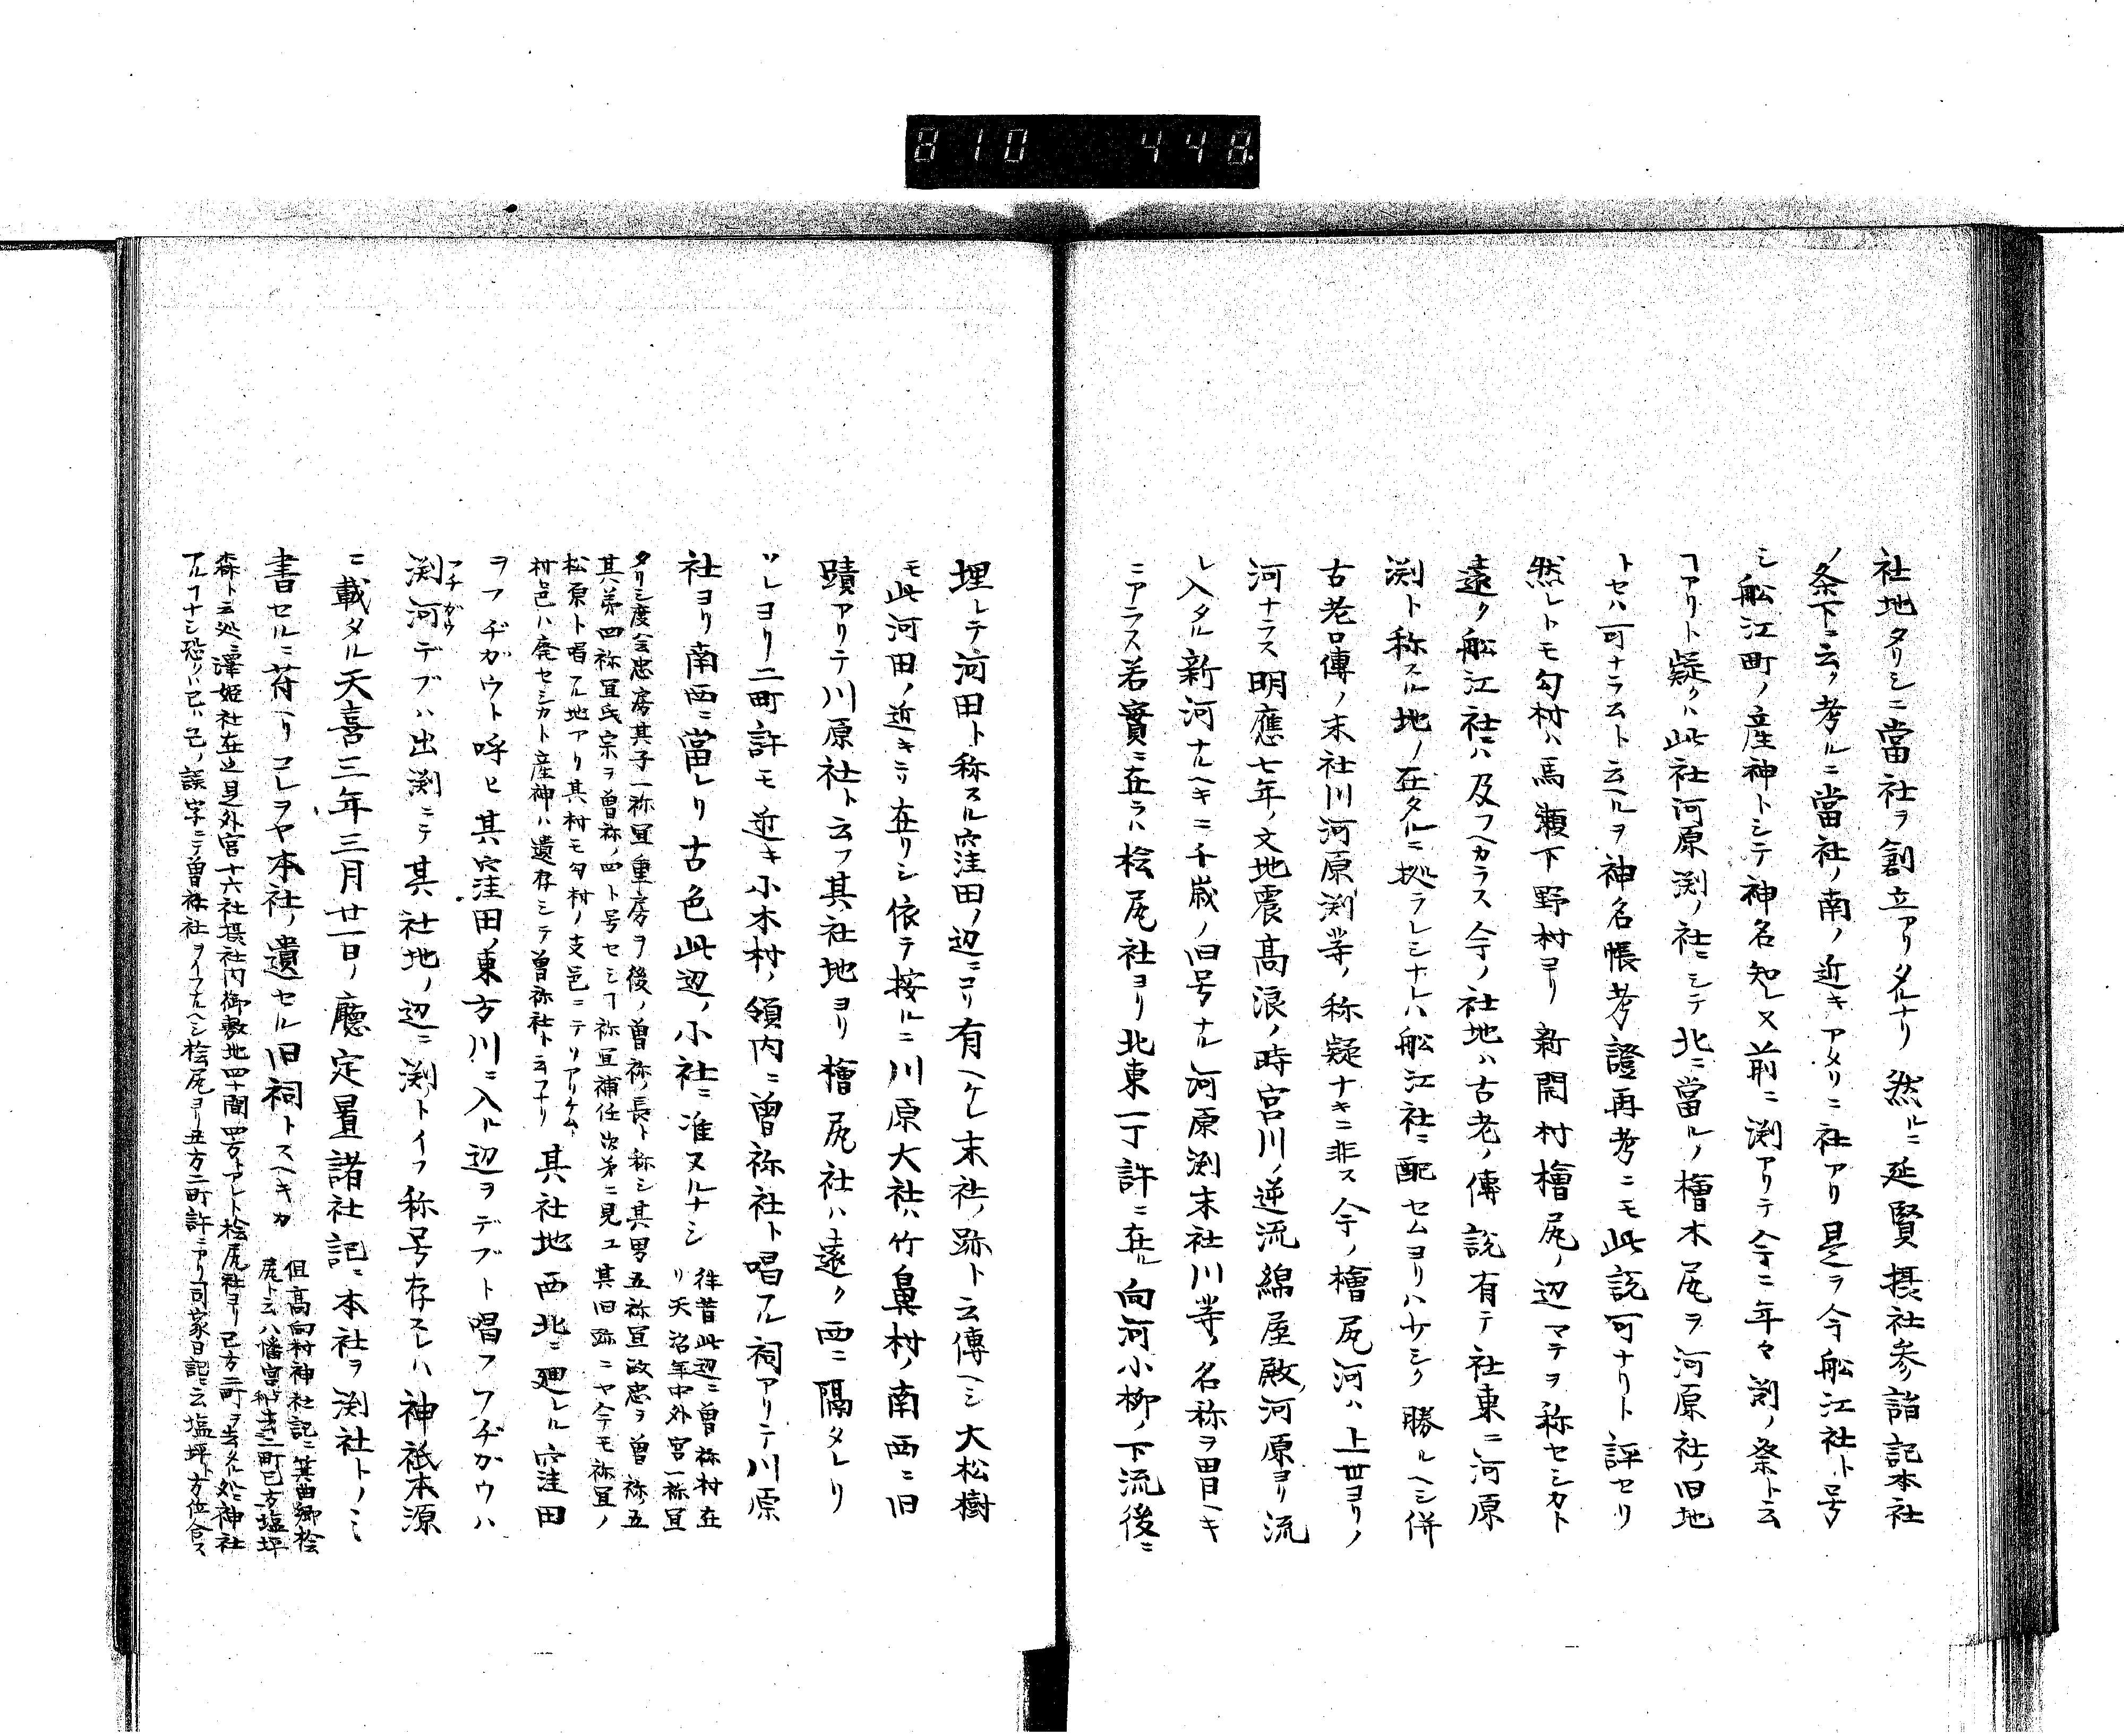 810 448.
社地タリシニ當社ヲ創立アリタルナリ然ルニ延賢摂社参詣記本社
ノ条下ニ云ク考ルニ當社ノ南ノ近キアタリニ社アリ是ヲ今舩江社ト号
シ舩江町ノ産神トシテ神名知レヌ前ニ渕アリテ今ニ年々渕ノ祭ト云
ヿアリト疑クハ此社河原渕ノ社ニシテ北ニ當ルノ檜木尻ヲ河原社ノ旧地
トセハ可ナラムト云ヘルヲ神名帳考證再考ニモ此説可ナリト評セリ
然レトモ勾村ハ馬瀬下野村ヨリ新開村檜尻ノ辺マテヲ称セシカト
遠ク舩江社ニハ及フヘカラス今ノ社地ハ古老ノ傳説有テ社東ニ河原
渕ト称スル地ノ在タルニ拠ラレシナレハ舩江社ニ配セムヨリハ少シク勝ルヘシ併
古老口傳ノ末社川河原渕等ノ称疑ナキニ非ス今ノ檜尻河ハ上世ヨリノ
河ナラス明應七年ノ大地震高浪ノ時宮川ノ逆流綿屋殿河原ヨリ流
レ入タル新河ナルヘキニ千歳ノ旧号ナル河原渕末社川等ノ名称ヲ冒ヘキ
ニアラス若實ニ在ラハ桧尻社ヨリ北東一丁許ニ在ル向河小柳ノ下流後ニ
埋レテ河田ト称スル窪田ノ辺ニコソ有ヘケレ末社ノ跡ト云傳ヘシ大松樹
モ此河田ノ近キニソ在リシ依テ按ルニ川原大社ハ竹鼻村ノ南西ニ旧
蹟アリテ川原社ト云フ其社地ヨリ檜尻社ハ遠ク西ニ隔タレリ
ソレヨリ二町許モ近キ小木村ノ領内ニ曽祢社ト唱フル祠アリテ川原
社ヨリ南西ニ當レリ古色此辺ノ小社ニ准ヌルナシ
往昔此辺ニ曽祢村在
リ天治年中外宮一祢冝
タリシ度会忠房其子一祢冝重房ヲ後ノ曽祢ノ長ト称シ其男五祢冝政忠ヲ曽祢ノ五
其弟四祢冝氏宗ヲ曽祢ノ四ト号セシヿ祢冝補任次第ニ見ユ其旧跡ニヤ今モ祢冝ノ
松原ト唱フル地アリ其村モ勾村ノ支邑ニテソアリケム
村邑ハ廃セシカト産神ハ遺存シテ曽祢社ト云フナリ
其社地西北ニ廻レル窪田
ヲフヂガウト呼ヒ其窪田ノ東方川ニ入ル辺ヲデブト唱フフヂガウハ
渕河デブハ出渕ニテ其社地ノ辺ニ渕トイフ称号存スレハ神祇本源
フチガウ
ニ載タル天喜三年三月廿一日ノ廳定置諸社記ニ本社ヲ渕社トノミ
書セルニ苻ヘリコレヲヤ本社ノ遺セル旧祠トスヘキカ
但高向村神社記ニ箕曲郷桧
尻ト云八幡宮二町巳方塩坪
森ト云処ニ澤姫社在之是外宮十六社摂社内御敷地四十間四方アレト桧尻社ヨリ巳方二町ヲ去タル処ニ神社
アルヿナシ恐クハ巳ハ已ノ誤字ニテ曽祢社ヲイフナルヘシ桧尻ヨリ丑方二町許ニアリ司家日記ニ云塩坪ト方位合ス